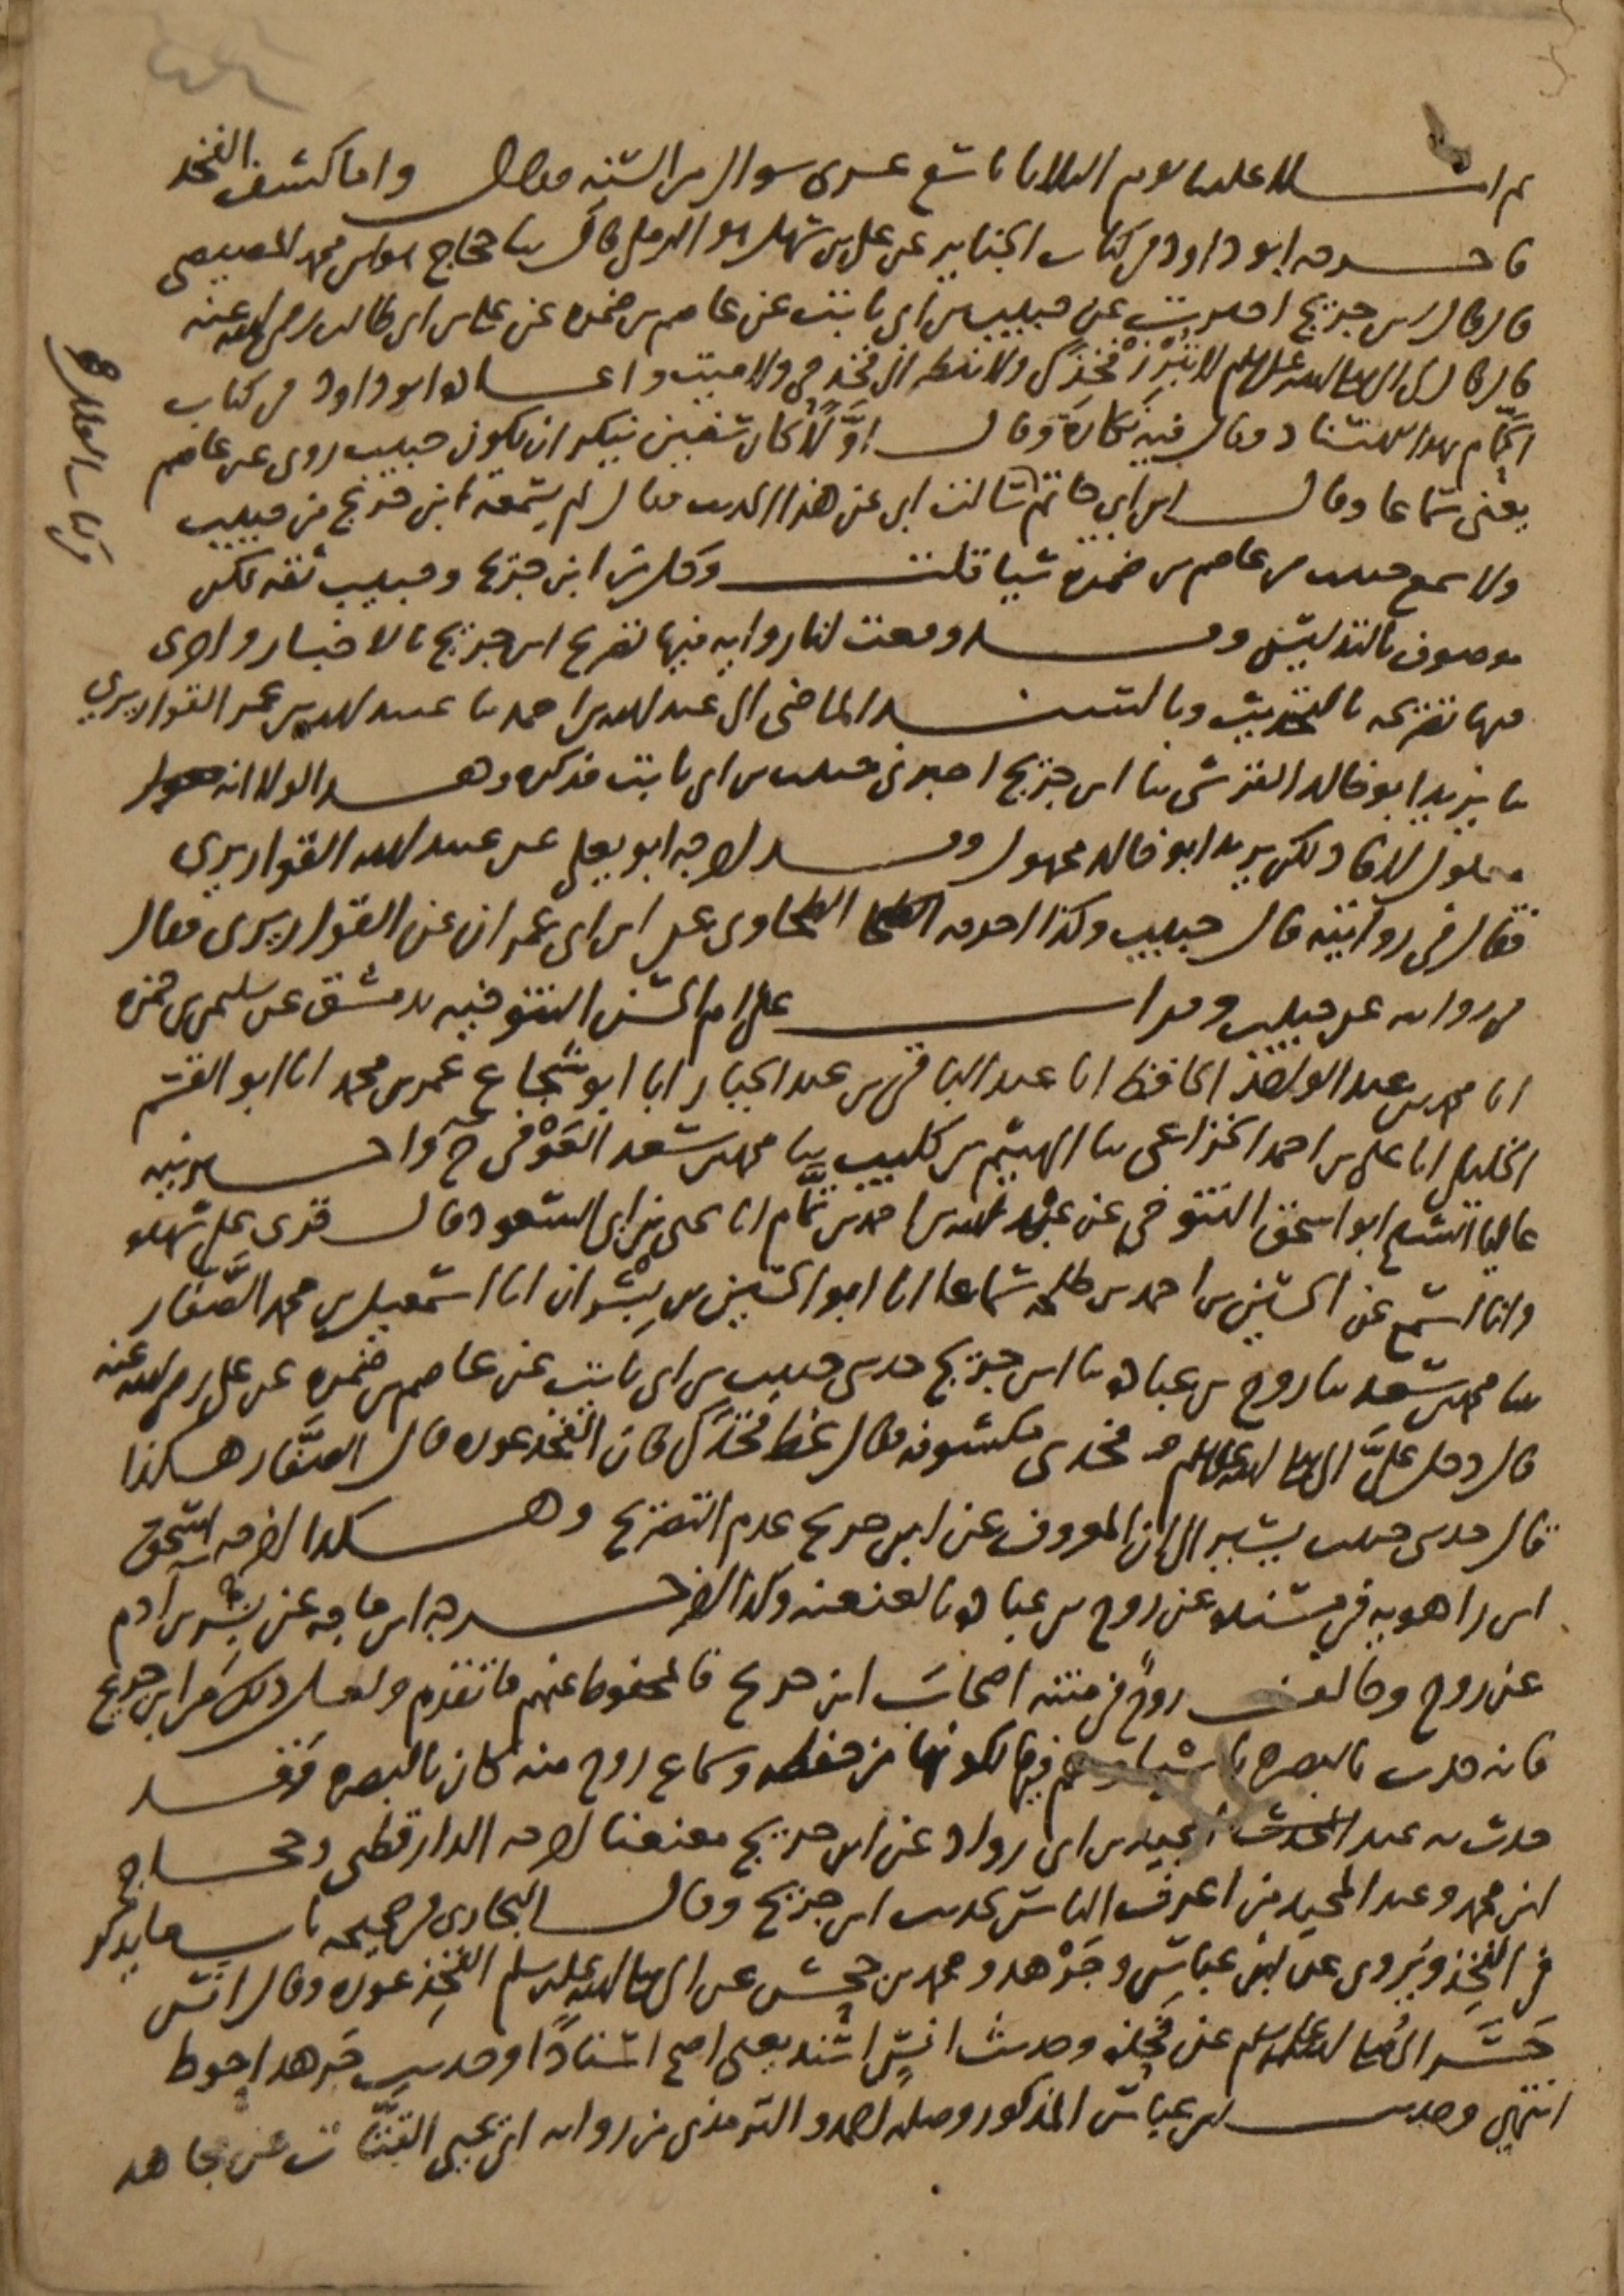 ثم املا علينا يوم الثلاثا تاسع عشرى شوال من السنة فقال واما كشف الفخذ
فاخرجه ابو داود في كتاب الجنايز عن على بن سهل هو الرملي قال ثنا حجاج هو ابن محمد المصيصي
قال قال ابن جريج اخبرت عن حبيب بن ابى ثابت عن عاصم بن ضمرة عن على بن ابى طالب رضى الله عنه
قال قال لى النبي صلى الله عليه وسلم لا تبرز فخذك ولا تنظر الى فخذ حي ولا ميت واعاده ابو داود في كتاب
الحمام بهذا الاسناد وقال فيه نكارة وقال اولا كان سفين ينكر ان يكون حبيب روى عن عاصم
يعنى سماعا وقال ابن ابي حاتم سالت ابى عن هذا الحديث فقال لم يسمعه ابن جريج من حبيب
ولا سمع حبيب من عاصم بن ضمرة شيا قلت وكل من ابن جريج وحبيب ثقة لكن
موصوف بالتدليس وقد وقعت لنا رواية فيها تصريح ابن جريج بالاخبار واخرى
فيها تصريحه بالتحديث وبالسند الماضى الى عبد الله بن احمد ثنا عبيد الله بن عمر القواريري
ثنا يزيد ابو خالد القرشى ثنا ابن جريج اخبرنى حبيب بن ابى ثابت فذكره وهذا لولا انه
معلول لافاد لكن يزيد ابو خالد مجهول وقد اخرجه ابو يعلى عن عبيد الله القواريري
فقال فى روايته قال حبيب وكذا اخرجه الطحاوى عن ابن ابى عمران عن القواريري فقال
في روايته عن حبيب وقرات على ام الحسن التنوخية بدمشق عن سليمن بن حمزة
انا محمد بن عبد الواحد الحافظ انا عبد الباقى بن عبد الجبار انا ابو شجاع عمر بن محمد انا ابو القسم
الخليلى انا على بن احمد الخزاعى ثنا الهيثم بن كليب ثنا محمد بن سعد العوفى ح واخبرنيه
عاليا الشيخ ابو اسحق التنوخى عن عبد الله بن احمد بن تمام انا يحيى بن ابى السعود قال قرى على شهدة
وانا اسمع عن الحسين بن احمد بن طلحة سماعا انا ابو الحسين بن بشران انا اسمعيل بن محمد الصفار
ثنا محمد بن سعد ثنا روح بن عبادة ثنا ابن جريج حدثنى حبيب بن ابى ثابت عن عاصم بن ضمرة عن على رضى الله عنه
قال دخل علىَّ النبي صلى الله عليه وسلم و فخذى مكشوفة فقال غط فخذك فان الفخذ عورة قال الصفار هكذا
قال حدثنى حبيب يشير الى ان المعروف عن ابن جريج عدم التصريح وهكذا اخرجه اسحق
ابن راهويه فى مسنده عن روح بن عبادة بالعنعنة وكذا اخرجه ابن ماجه عن بشر بن آدم
عن روح وخالف روح فى متنه اصحاب ابن جريج فالمحفوظ عنهم ما تقدم ولعل ذلك من ابن جريج
فانه حدث بالبصرة باشيا وهم فيها لكونها من حفظه وسماع روح منه كان بالبصرة فقد
حدث به عبد المجيد بن ابى رواد عن ابن جريج معنعنا اخرجه الدارقطنى وحجاج
ابن محمد وعبد المجيد من اعرف الناس بحديث ابن جريج وقال البخارى فى صحيحه باب ما يذكر
فى الفخذ ويروى عن ابن عباس وجرهد ومحمد بن جحش عن النبي صلى الله عليه وسلم الفخذ عورة وقال انس
حسر النبي صلى الله عليه وسلم عن فخذه وحديث انس اسند يعنى اصح اسنادًا وحديث جرهد احوط
انتهى وحديث ابن عباس المذكور وصله احمد والترمذى من رواية ابى يحيى القتات عن مجاهد